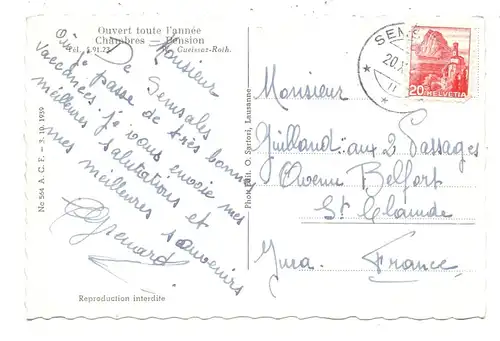 Ouvert toute l'année
Chambres — Pension
Tél. 5.91.22 Gueissaz-Roth.
Monsieur
De Semsales
Où je passe de très bonnes
vacances. je vous envoie mes
meilleures salutations et
mes meilleures souvenirs
No 564 A. C. F. - 3. 10. 1939
Reproduction interdite
Phot. Edit. O. Sartori, Lausanne
SEMS
20.X
11
20
HELVETIA
Monsieur
Guilland aux 2 Passages
Avenue Belfort
St Claude
Jura. France